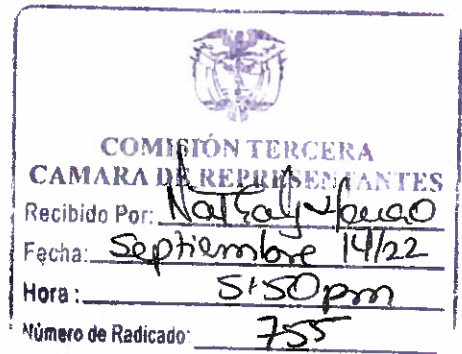 COMISIÓN TERCERA
CAMARA DE REPRESENTANTES
Recibido Por: Nataly
Fecha: Septiembre 14/22
Hora: 5:50pm
Número de Radicado: 755